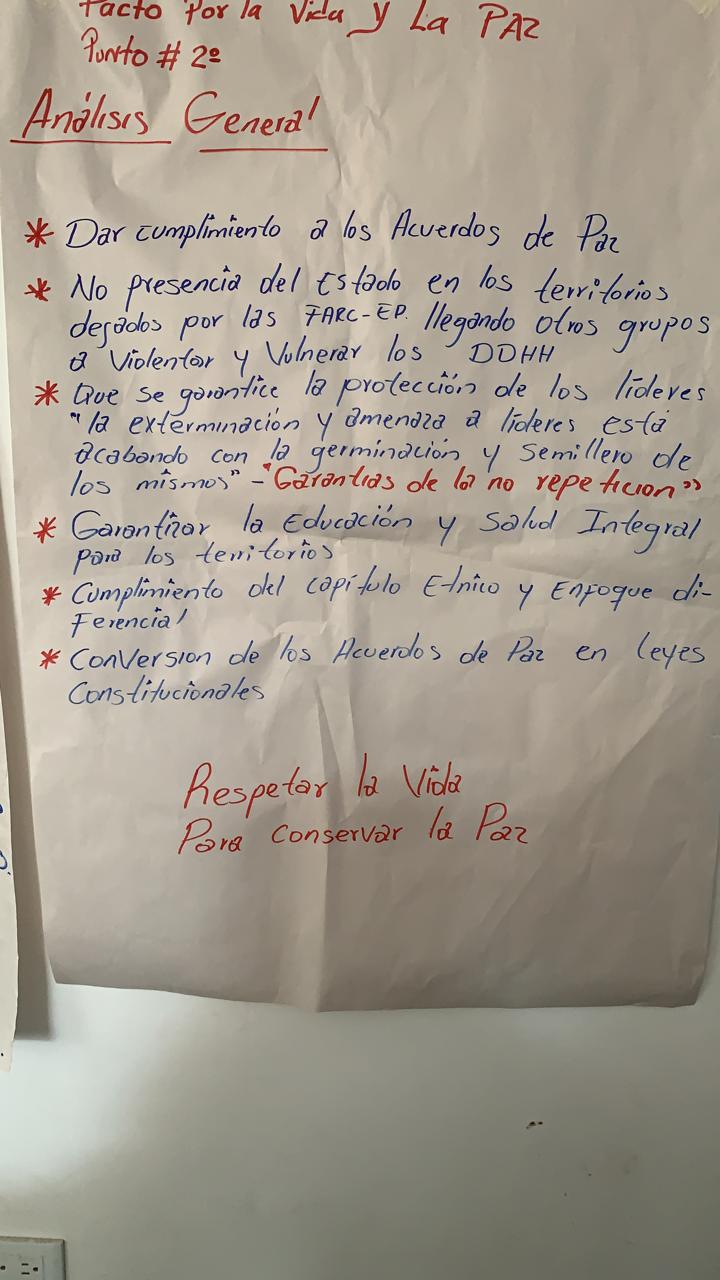 Pacto Por la Vida y La PAZ
Punto # 2º
Análisis General
* Dar cumplimiento a los Acuerdos de Paz
* No presencia del Estado en los territorios
dejados por las FARC-EP. llegando otros grupos
a Violentar y Vulnerar los DDHH
* Que se garantice la protección de los líderes
"la exterminación y amenaza a líderes está
acabando con la germinación y Semillero de
los mismos" - "Garantias de la no repeticion"
* Garantizar la Educación y Salud Integral
para los territorios
* Cumplimiento del capítulo Etnico y Enfoque di-
Ferencial
* Conversion de los Acuerdos de Paz en leyes
Constitucionales
Respetar la Vida
Para conservar la Paz